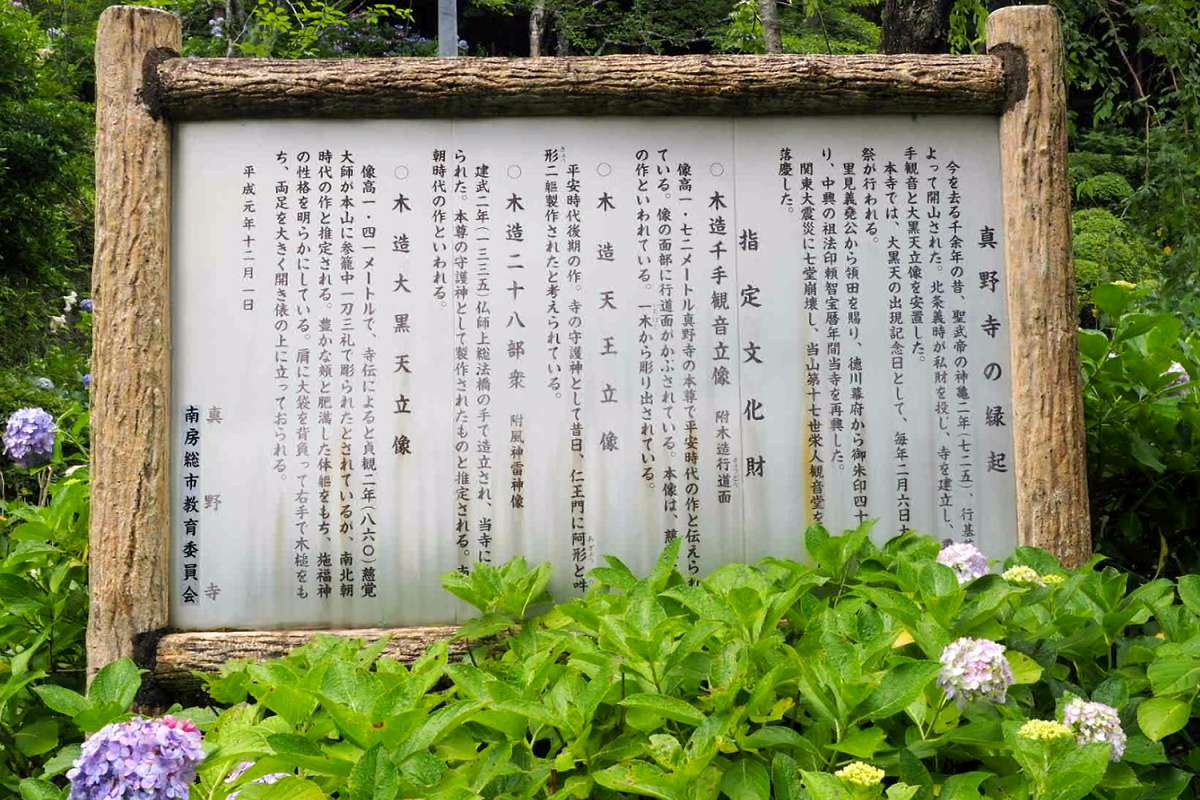 真野寺の縁起
今を去る千余年の昔、聖武帝の神亀二年(七二五)、行基
よって開山された。北条義時が私財を投じ、寺を建立し、
手観音と大黒天立像を安置した。
本寺では、大黒天の出現記念日として、毎年二月六日
祭が行われる。
里見義発公から領田を賜り、徳川幕府から御朱印四十
り、中興の祖法印頼智宝暦年間当寺を再興した。
関東大震災に七堂崩壊し、当山第十七世栄人観音堂を
落慶した。
指定文化財
○木造千手観音立像 附木造行道面
像高一・七二メートル真野寺の本尊で平安時代の作と伝えられ
ている。像の面部に行道面がかぶされている。本像は、
の作といわれている。一木から彫り出されている。
○木造天王立像
平安時代後期の作。寺の守護神として昔日、仁王門に阿形と吽
形二軀製作されたと考えられている。
○木造二十八部衆 附風神雷神像
建武二年(一三三五)仏師上総法橋の手で造立され、当寺に
られた。本尊の守護神として製作されたものと推定される。
朝時代の作といわれる。
○木造大黒天立像
像高一・四一メートルで、寺伝によると貞観二年(八六〇)慈覚
大師が本山に参籠中一刀三礼で彫られたとされているが、南北朝
時代の作と推定される。豊かな頬と肥満した体軀をもち、施福神
の性格を明らかにしている。肩に大袋を背負って右手で木槌をも
ち、両足を大きく開き俵の上に立っておられる。
平成元年十二月一日
真野寺
南房総市教育委員会